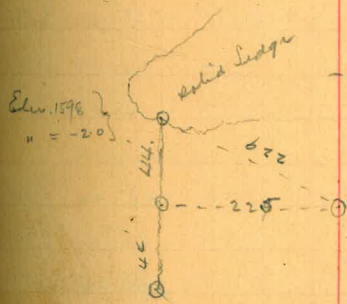 Solid Ledge
Elev. 1598
" = -20
44.
622
225
44